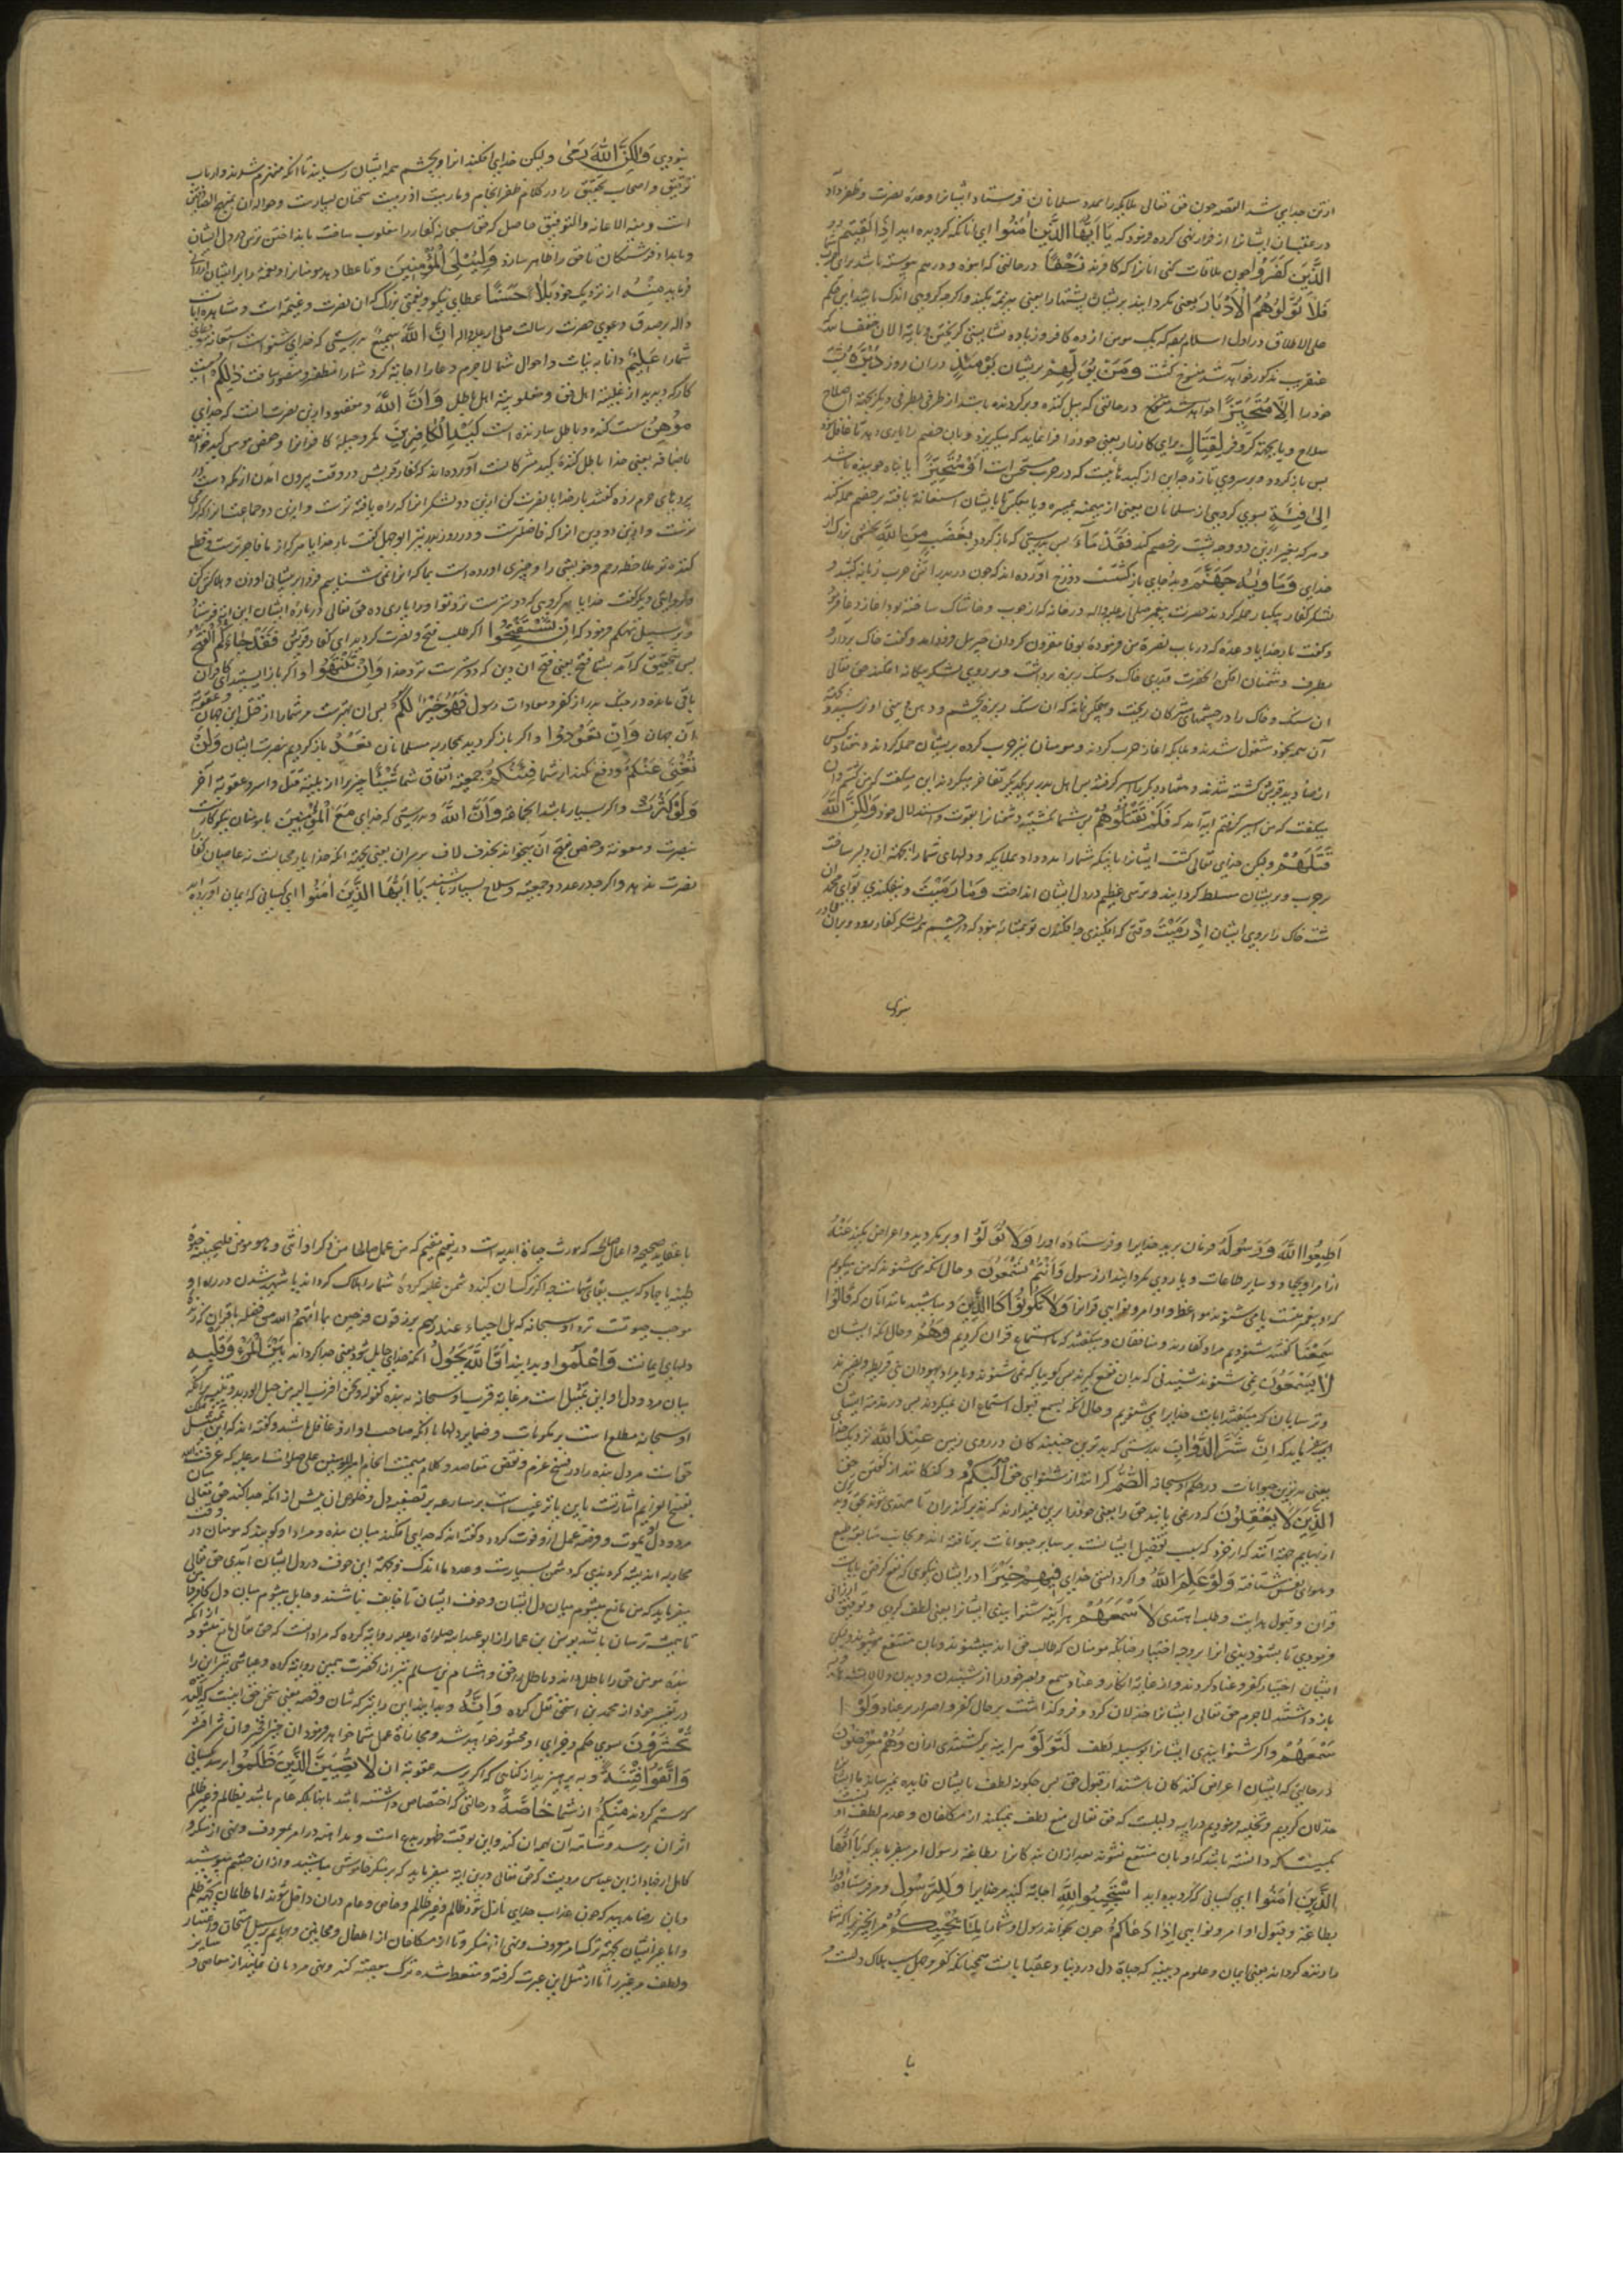 ازین جدایی شد القصه چون حق تعالی ملایکه را بمدد مسلمانان فرستاد و ایشانرا وعده نصرت و ظفر داد
در عقب ان ایشانرا از فرار نهی کرده فرمود که یَا اَیُّهَا الَّذِینَ اٰمَنُوا ای انانکه گرویده اید اِذَا لَقِیتُمُ
الَّذِینَ کَفَرُوا چون ملاقات کنی انانرا که کافرند زَحْفًا درحالتی که انبوه و درهم پیوسته باشند برای حرب
فَلَا تُوَلُّوهُمُ الْاَدْبَارَ یعنی مگردانید بریشان پشتها را یعنی هزیمه مکنید و اگرچه گروهی اندک باشید این حکم
علی الاطلاق در اول اسلام بود که یک مومن از ده کافر و زیاده نشایستی گریختن و بایه الان خفف الله
عنقریب مذکور خواهد شد منسوخ گشت وَمَنْ یُوَلِّهِمْ بریشان یَوْمَئِذٍ دران روز دُبُرَهُ پشت
خود را اِلَّا مُتَحَرِّفًا درحالتی که میل کننده و برگردنده باشد از طرفی بطرفی دیگر بجهة اصلاح
سلاح و یا بجهة کر و فر لِقِتَالٍ برای کارزار یعنی خود را فرا نماید که میگریزد
پس باز گردد و بر سر وی تازد و این از کید هائیست که در حرب مستحسن است اَوْ مُتَحَیِّزًا یا پناه جوینده باشد
اِلٰی فِئَةٍ سوی گروهی از مسلمانان یعنی از میمنه بمیسره و یا بعکس تا بایشان استعانة یافته بر خصم حمله کند
و هرکه بغیر ازین دو وجه پشت بر خصم کند فَقَدْ بَاءَ پس بدرستی که باز گردد بِغَضَبٍ مِنَ اللّٰهِ بخشمی بزرگ از
خدای وَمَأْوٰیهُ جَهَنَّمُ و جای بازگشت دوزخ اورده اند که چون در بدر اتش حرب زبانه کشید و
لشکر کفار بیکبار حمله کردند حضرت پیغمبر صلی الله علیه واله درخانه که از چوب و خاشاک ساخته بود اغاز دعا فرمود
و گفت بار خدایا وعده که در باب نصرة من فرمودهٔ بوفا مقرون گردان جبریل فرود امد و گفت خاک بردار و
بطرف دشمنان افکن انحضرت قدری خاک و سنک ریزه برداشت و بر روی لشکر بیکانه افکند حق تعالی
ان سنک و خاک را در چشمهای مشرکان ریخت و هیچکس نماند که ان سنک ریزه بچشم و دهن و بینی او نرسید
ان همه بخود مشغول شدند و ملایکه اغاز حرب کردند و مومنان نیز حرب کرده بریشان حمله کردند و هفتاد کس
از صنادید قریش کشته شدند و هفتاد دیگر اسیر گرفتند پس اهل بدر بر یکدیگر تفاخر میکردند این میگفت که من کشتم و ان
میگفت که من اسیر گرفتم ایه امد که فَلَمْ تَقْتُلُوهُمْ پس شما نکشتید دشمنانرا بقوت و استقلال خود وَلٰکِنَّ اللّٰهَ
قَتَلَهُمْ ولیکن خدای تعالی کشت ایشانرا بانکه شمارا مدد داد بملایکه و دلهای شمارا بجهة ان دلیر ساخت
بر حرب و بریشان مسلط گردانید و ترسی عظیم در دل ایشان انداخت وَمَا رَمَیْتَ و نیفکندی تو ای محمد ان
مشت خاک را بروی ایشان اِذْ رَمَیْتَ وقتی که افکندی
بنودی
بنودی وَلٰکِنَّ اللّٰهَ رَمٰی ولیکن خدای افکند انرا و بچشم همه ایشان رسانید تا انکه منهزم شدند و ارباب
توفیق و اصحاب تحقیق را در کلام ظفر انجام و ما رمیت اذ رمیت سخنان بسیارست
است ومنه الاعانه والتوفیق حاصل که حق سبحانه کفار را مغلوب ساخت بانداختن ترس در دل ایشان
و بامداد فرشتکان تا حق را ظاهر سازد وَلِیُبْلِیَ الْمُؤْمِنِینَ و تا عطا دهد مومنانرا
فرماید مِنْهُ از نزدیک خود بَلَاءً حَسَنًا عطای نیکو و نعمتی بزرک که ان نصرت و غنیمة است و مشاهده ایات
داله برصدق دعوی حضرت رسالت صلی الله علیه واله اِنَّ اللّٰهَ سَمِیعٌ بدرستی که خدای شنواست استغاثه و دعای
شمارا عَلِیمٌ دانا به نیات و احوال شما لاجرم دعا را اجابة کرد و شمارا مظفر و منصور ساخت ذٰلِکُمْ اینست
کار که دیدید از غلبهٔ اهل حق و مغلوبیة اهل باطل وَاَنَّ اللّٰهَ و مقصود ازین نصرت انست که خدای
مُوهِنُ سست کننده و باطل سازنده است کَیْدِ الْکَافِرِینَ مکر و حیلهٔ کافرانرا و حفص موهن کید خوانده
باضافه یعنی خدا باطل کنندهٔ کید مشرکانست آورده اند که کفار قریش در وقت بیرون امدن از مکه دست در
پردهای حرم زده گفتند بار خدایا نصرت کن ازین دو لشکر انرا که راه یافته ترست و ازین دو جماعت انرا که گرامی
ترست و ازین دو دین انرا که فاضلترست و در روز بدر نیز ابوجهل گفت بار خدایا هرکه از ما فاجرترست و قطع
کننده تر ملاحظه رحم و خویشی را و چیزی اورده است بما که انرا نمی شناسیم فردا بر پیشانی او زن و هلاکش کن
خدایا هر گروهی که دوسترست نزد تو او را یاری ده حق تعالی دربارهٔ ایشان این ایه فرستاد
و بر سبیل تهکم فرمود که اِنْ تَسْتَفْتِحُوا اگر طلب فتح و نصرت کردید ای کفار قریش فَقَدْ جَاءَکُمُ الْفَتْحُ
پس بتحقیق که امد بشما فتح یعنی فتح ان دین که دوسترست نزد خدا وَاِنْ تَنْتَهُوا و اگر باز ایستید ای کافران
باقی مانده در جنک بدر از کفر و معادات رسول فَهُوَ خَیْرٌ لَکُمْ پس ان بهترست مر شمارا از قتل این جهان و عقوبة
ان جهان وَاِنْ تَعُودُوا و اگر باز گردید بمحاربه مسلمانان نَعُدْ باز گردیم بنصرت ایشان وَلَنْ
تُغْنِیَ عَنْکُمْ و دفع نکند از شما فِئَتُکُمْ جمعیة و اتفاق شما شَیْئًا چیزی را از بلیهٔ قتل و اسر و عقوبة اخر
وَلَوْ کَثُرَتْ و اگر بسیار باشد ان جماعة وَاَنَّ اللّٰهَ و بدرستی که خدای مَعَ الْمُؤْمِنِینَ با مومنان نیکوکارست
بنصرت و معونه و حفص بفتح ان میخواند بحذف لام یعنی بجهة انکه خدا یار محبانست نه عاصیان کفار را
نصرت ندهد و اگرچه در عدد و جمعیة و سلاح بسیار باشند یَا اَیُّهَا الَّذِینَ اٰمَنُوا ای کسانی که ایمان اورده اید
اَطِیعُوا اللّٰهَ وَرَسُولَهُ فرمان برید خدایرا و فرستادهٔ او را وَلَا تَوَلَّوْا و برمگردید و اعراض مکنید عَنْهُ
از امر او بجهاد و سایر طاعات و یا روی مگردانید از رسول وَاَنْتُمْ تَسْمَعُونَ و حال انکه می شنوید که من میگویم
که او پیغمبرست یا می شنوید مواعظ و اوامر و نواهی قرانرا وَلَا تَکُونُوا کَالَّذِینَ و مباشید مانند انان که قَالُوا
سَمِعْنَا گفتند شنودیم مراد کفارند و منافقان و میگفتند که ما استماع قران کردیم وَهُمْ و حال انکه ایشان
لَا یَسْمَعُونَ نمی شنوند شنیدنی که بدان نفع گیرند پس گوییا که نمی شنوند و یا مراد یهودان بنی قریظه و نضیرند
و ترسایان که میگفتند ایات خدایرا می شنویم و حال انکه بسمع قبول استماع ان نمیکردند پس در مذمة ایشان
میفرماید که اِنَّ شَرَّ الدَّوَابِّ بدرستی که بدترین جنبندکان در روی زمین عِنْدَ اللّٰهِ نزدیک خدا
یعنی بدترین حیوانات در حکم او سبحانه الصُّمُّ کرانند از شنوای حق الْبُکْمُ و کنکانند از گفتن حق
الَّذِینَ لَا یَعْقِلُونَ که در نمی یابند حق را
از بهایم
و هوای نفس شتافته وَلَوْ عَلِمَ اللّٰهُ و اگر دانستی خدای فِیهِمْ خَیْرًا در ایشان نیکوی که نفع گرفتن بایات
قران و قبول هدایت و طلب اهتدی لَاَسْمَعَهُمْ هر اینه شنوا نیدی ایشانرا یعنی لطف کردی و توفیق ارزانی
فرمودی تا بشنودندی انرا بروجه اختیار چنانکه مومنان که طالب حق اند میشنوند و بان منتفع میشوند ولیکن
ایشان اختیار کفر و عناد کردند و از غایة انکار و عناد سمع و بصر خود را از شنیدن و دیدن
باز داشتند لاجرم حق تعالی ایشانرا خذلان کرد و فرو گذاشت بر حال کفر و اصرار بر عناد وَلَوْ
اَسْمَعَهُمْ و اگر شنوا نیدی ایشانرا بوسیله لطف لَتَوَلَّوْا هراینه برگشتندی ازان وَهُمْ مُعْرِضُونَ
درحالتی که ایشان اعراض کنندکان باشند از قبول حق پس چگونه لطف بایشان فایده
خذلان کردیم و تخلیه فرمودیم درایه دلیلست که حق تعالی منع لطف نمیکند از مکلفان و عدم لطف او
دانسته باشد که او بان منتفع نشود بعد ازان بندکانرا بطاعة رسول امر میفرماید که یَا اَیُّهَا
الَّذِینَ اٰمَنُوا ای کسانی که گرویده اید اسْتَجِیبُوا لِلّٰهِ اجابة کنید مر خدایرا وَلِلرَّسُولِ و مر فرستاده او را
بطاعة و قبول اوامر و نواهی اِذَا دَعَاکُمْ چون بخواند رسول او شمارا لِمَا یُحْیِیکُمْ مر انچیزیرا که شما
را زنده گرداند یعنی ایمان و علوم دینیه که حیاة دل در دنیا و عقبا بانست همچنانکه کفر و جهل سبب هلاک دلست و
یا
یا عقاید صحیحه و اعمال صالحه که مورث حیاة ابدیه است در نعیم مقیم که من عمل صالحا من ذکر او انثی و هو مومن فلنحیینه حیوة
طیبه یا جهاد که سبب بقای شماست چه اگر ترک ان کنید دشمن غلبه کرده شمارا هلاک گرداند یا شهید شدن در راه او
موجب حیوتست نزد او سبحانه که بل احیاء عند ربهم یرزقون فرحین بما اتیهم الله من فضله یا قران که زندکی
دلهای ایمانست وَاعْلَمُوا و بدانید اَنَّ اللّٰهَ یَحُولُ انکه خدای حایل شود یعنی جدا گرداند بَیْنَ الْمَرْءِ وَقَلْبِهِ
میان مرد و دل او این تمثیل است مر غایة قرب او سبحانه به بنده کقوله ونحن اقرب الیه من حبل الورید
او سبحانه مطلع است بر مکنونات و ضمایر دلها با انکه صاحب او ازو غافل باشد و گفته اند که این تمثیل
مر دل بنده را در فسخ عزم و نقض مقاصد و کلام میمنت انجام امیرالمومنین علی صلوات الله علیه که عرفت الله
بفسخ العزایم اشارتست باین یا ترغیب است بر مسارعه بر تصفیه دل و خلوص ان پیش از انکه جدا کند حق تعالی میان
مرد و دل او بموت و فرصة عمل ازو فوت گردد و گفته اند که جدای افکند میان بنده و مراد او گویند که مومنان در وقت
محاربه اندیشه کردندی که دشمن بسیارست و عدد ما اندک و بجهة این خوف در دل ایشان آمدی حق تعالی
میفرماید که من مانع میشوم میان دل ایشان و خوف ایشان تا خایف نباشند و حایل میشوم میان دل کافر
تا همیشه ترسان باشد یونس بن عمار از ابو عبدالله صلوات الله علیه روایة کرده که مراد انست که حق تعالی مانع میشود از انکه
بنده مومن حق را باطل داند و باطل را حق و هشام بن سالم نیز از انحضرت همین روایة کرده و عیاشی نیز این را
در تفسیر خود از محمد بن اسحق نقل کرده وَاَنَّهُ و بدانید این را نیز که شان و قصه یعنی سخن حق اینست که اِلَیْهِ
تُحْشَرُونَ سوی حکم و جزای او محشور خواهید شد و مجازاة عمل شما خواهد فرمود ان خیرا فخیر وان شرا فشر
وَاتَّقُوا فِتْنَةً و بپرهیزید از گناهی که اگر برسد عقوبة ان لَا تُصِیبَنَّ الَّذِینَ ظَلَمُوا نرسد بکسانی
که ستم کردند مِنْکُمْ از شما خَاصَّةً درحالتی که اختصاص داشته باشد بانها بلکه عام باشد بظالم و غیر ظالم
اثر ان برسد و شامت آن همه ان کند و این بوقت ظهور بدع است و مداهنه در امر بمعروف و نهی از منکر و
از ابن عباس مرویست که حق تعالی درین ایه میفرماید که بر منکر خاموش مباشید و از ان چشم مپوشید
و بان رضا مدهید که چون عذاب خدای نازل شود ظالم و غیر ظالم و خاص و عام دران داخل شوند اما ظالمان بجهة ظلم
و اما غیر ایشان بجهة ترک امر بمعروف و نهی از منکر و اما از مکلفان از اطفال و مجانین و بهایم
ولطف مر غیر را تا از مثل این عبرت گرفته و متعظ شده ترک معصیة کند و نهی مردمان نمایند از معاصی و